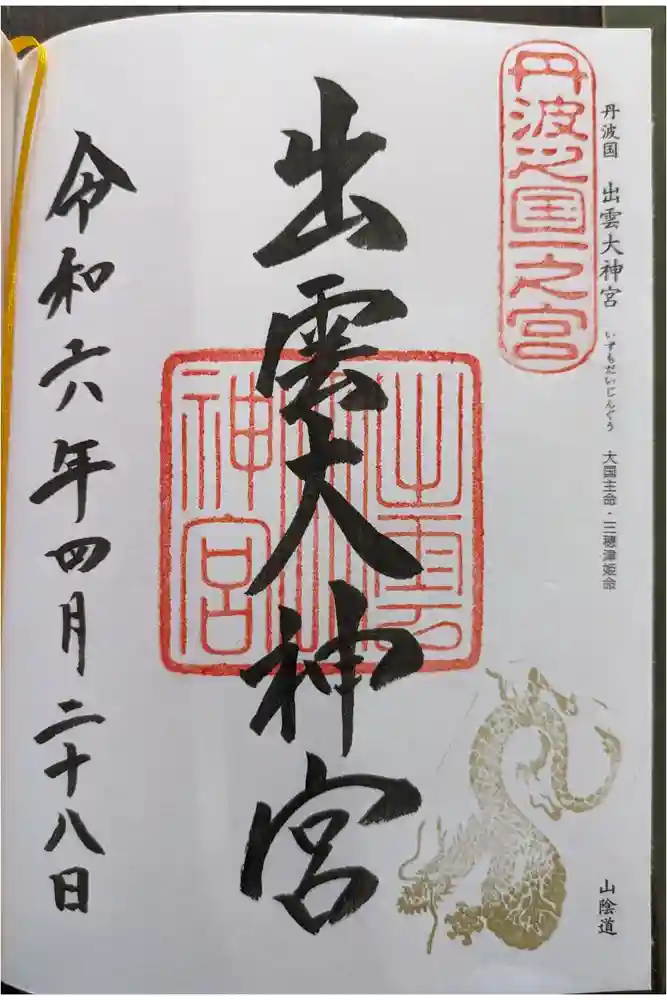 丹波国 出雲大神宮 いずもだいじんぐう 大国主命・三穂津姫命
山陰道
丹波之国一之宮
出雲大神宮
出雲大神宮
令和六年四月二十八日